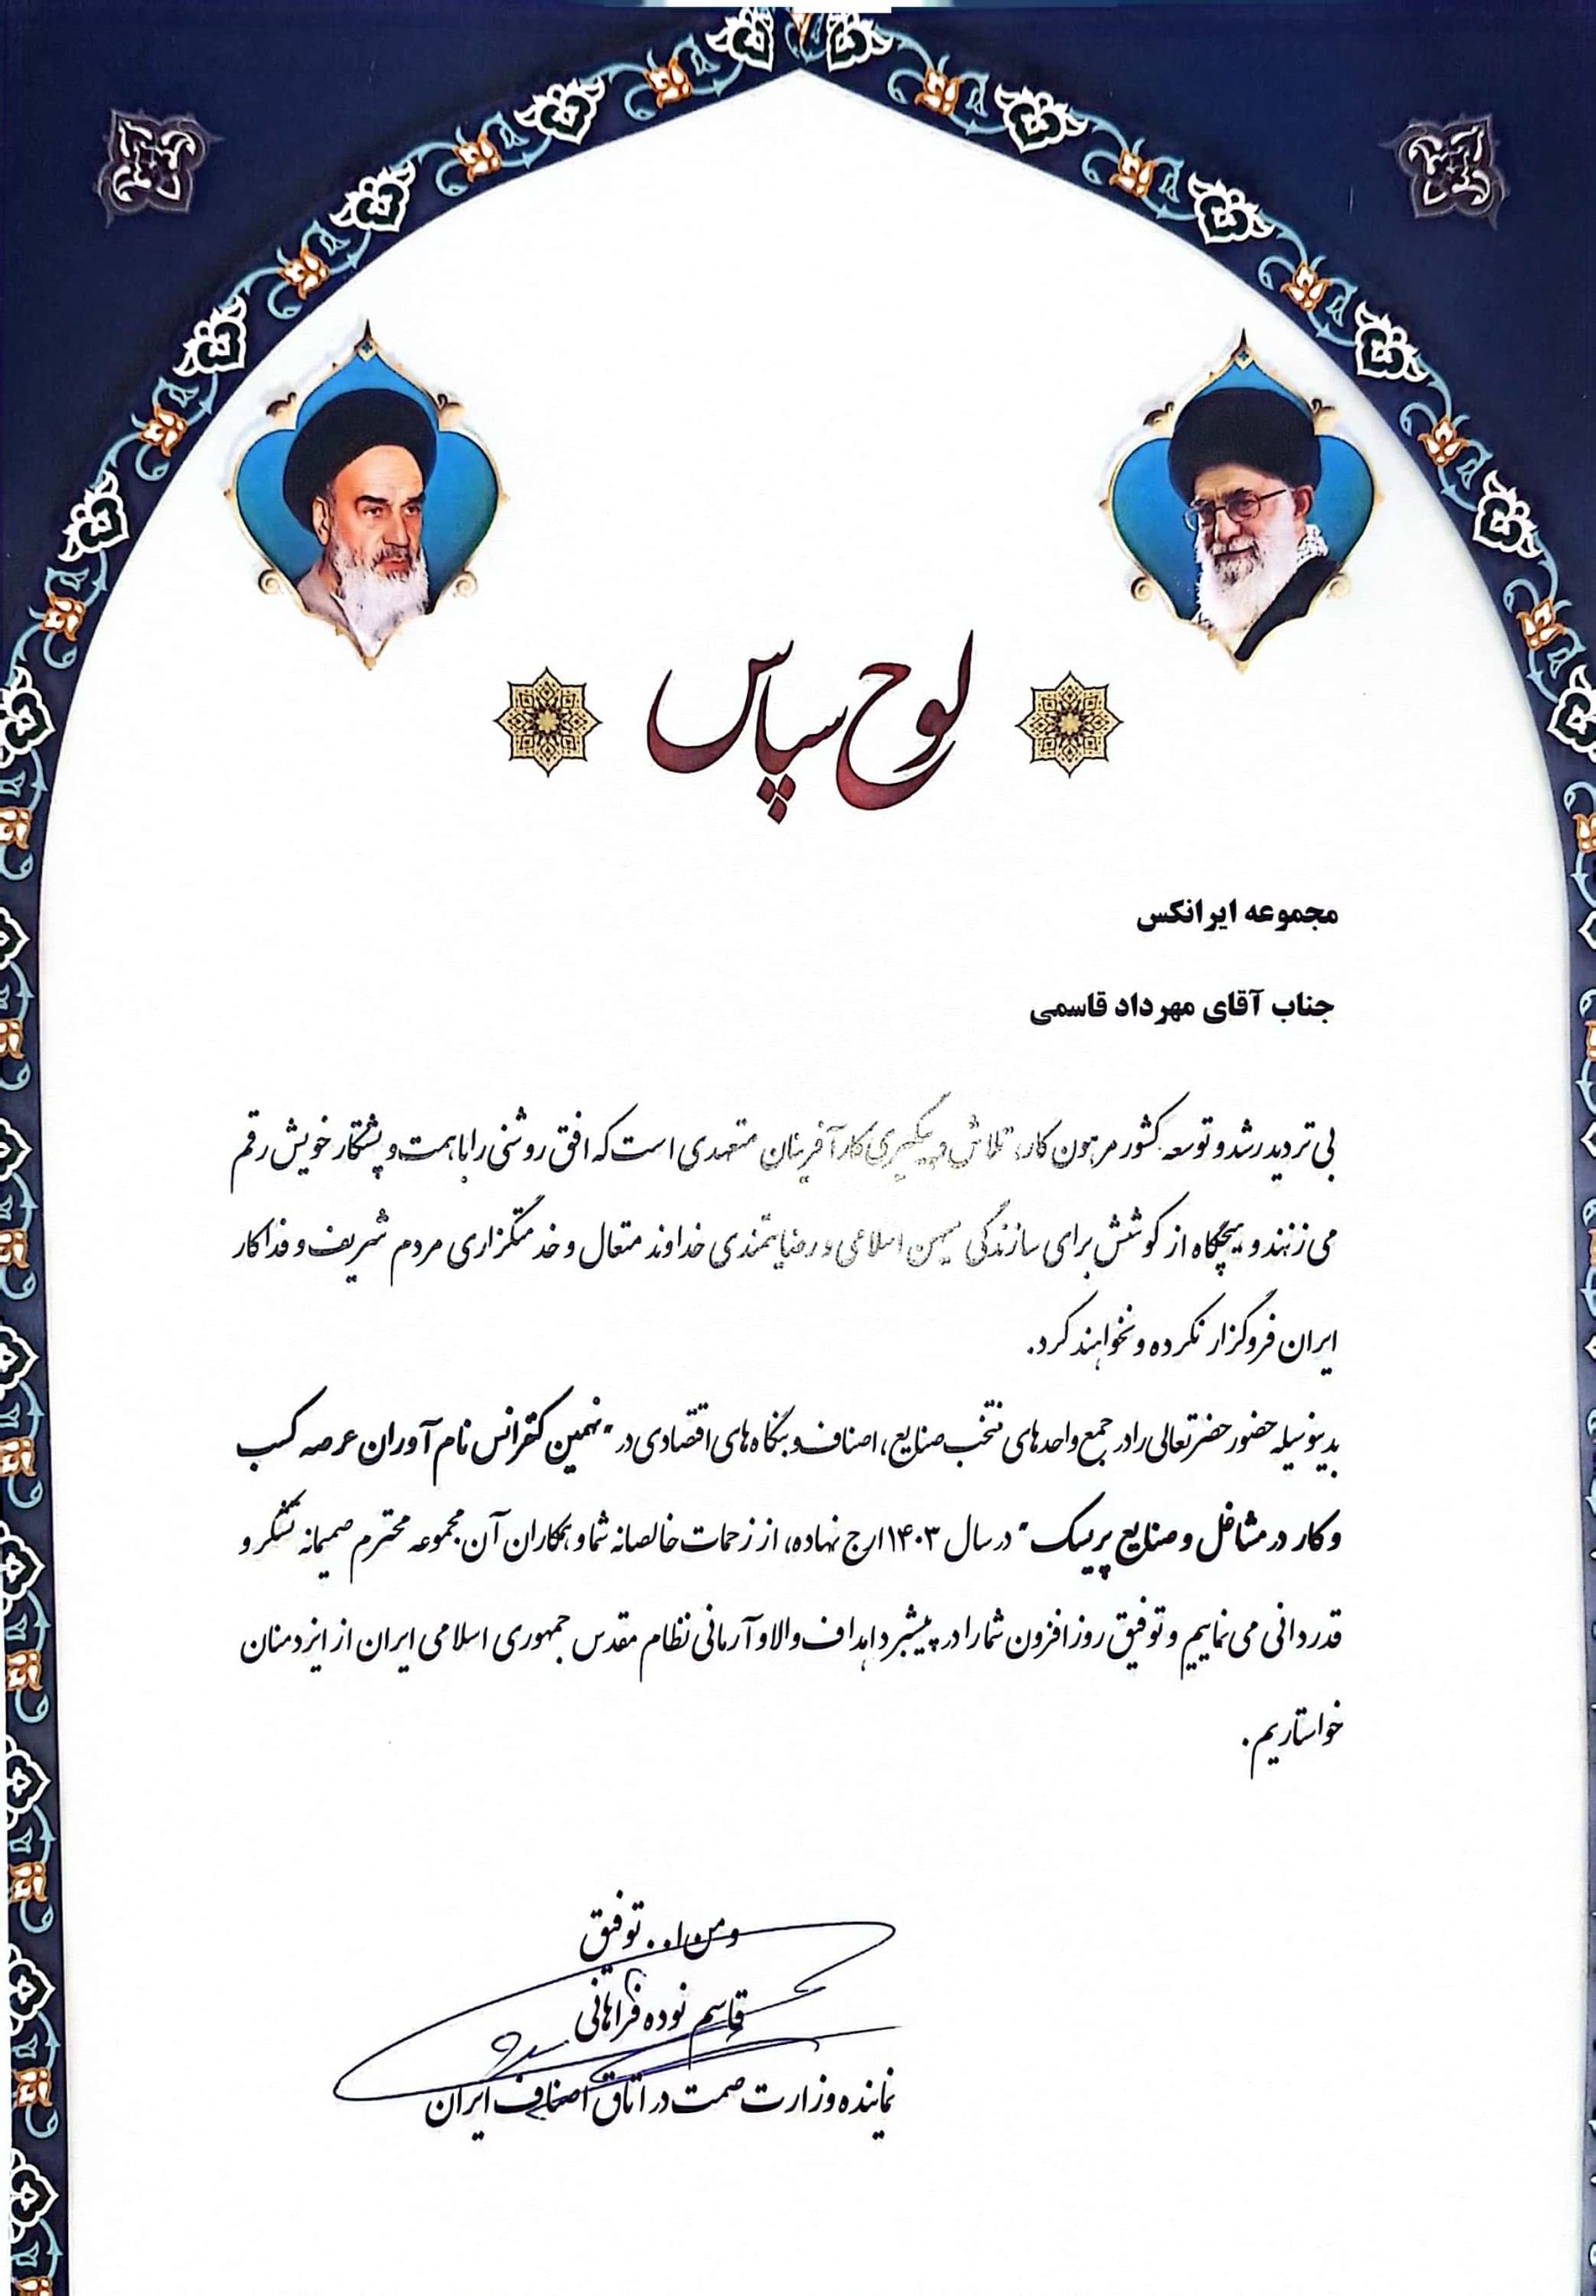 لوح سپاس
مجموعه ایرانکس
جناب آقای مهرداد قاسمی
بی تردید رشد و توسعه کشور مرهون کار، تلاش و پیگیری کارآفرینان متعهدی است که افق روشنی را با همت و پشتکار خویش رقم
می زنند و هیچگاه از کوشش برای سازندگی میهن اسلامی و رضایتمندی خداوند متعال و خدمتگزاری مردم شریف و فداکار
ایران فروگزار نکرده و نخواهند کرد.
بدینوسیله حضور حضرتعالی را در جمع واحدهای منتخب صنایع، اصناف و بنگاه های اقتصادی در "نهمین کنفرانس نام آوران عرصه کسب
و کار در مشاغل و صنایع پر ریسک" در سال ۱۴۰۳ ارج نهاده، از زحمات خالصانه شما و همکاران آن مجموعه محترم صمیمانه تشکر و
قدردانی می نماییم و توفیق روز افزون شما را در پیشبرد اهداف والا و آرمانی نظام مقدس جمهوری اسلامی ایران از ایزد منان
خواستاریم.
و من ا... توفیق
قاسم نوده فراهانی
نماینده وزارت صمت در اتاق اصناف ایران